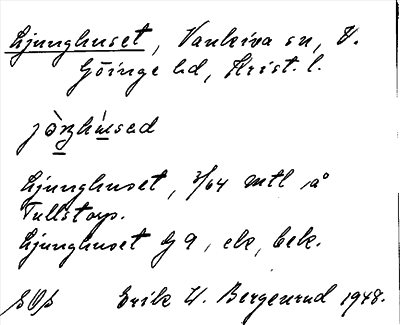 Ljunghuset, Vankiva sn, V.
Göinge hd, Krist. l.
jò̱ŋhù̱sed
Ljunghuset, 3/64 mtl å
Tullstorp.
Ljunghuset G 9, ek, bek.
SOS Erik W. Bergenrud 1948.